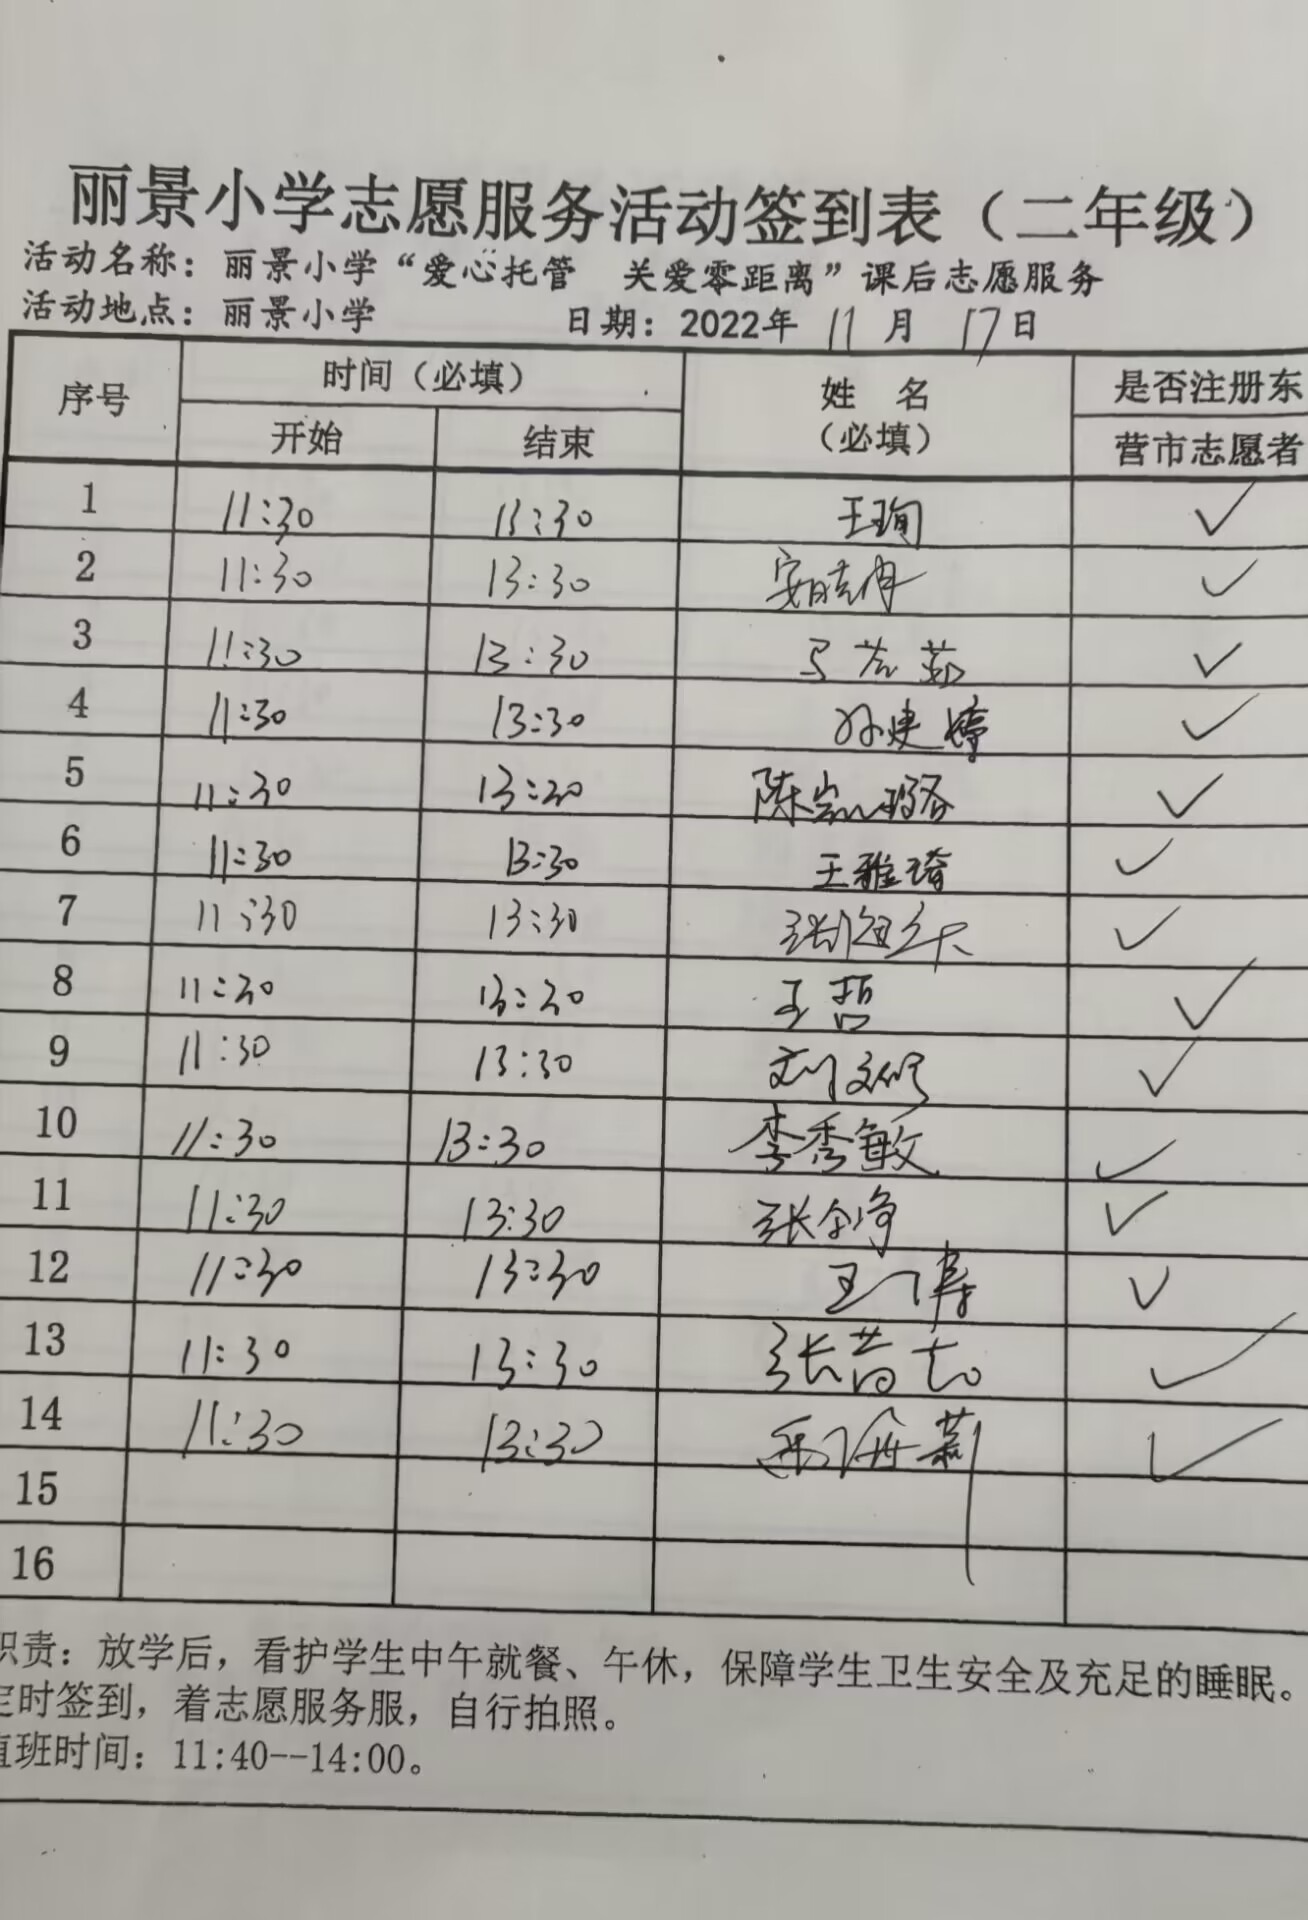 丽景小学志愿服务活动签到表（二年级）
活动名称：丽景小学“爱心托管 关爱零距离”课后志愿服务
活动地点：丽景小学 日期：2022年 11 月 17日
序号 时间（必填） 姓 名（必填） 是否注册东营市志愿者
开始 结束
1 11:30 13:30 王珣 ✓
2 11:30 13:30 ✓
3 11:30 13:30 马 茹 ✓
4 11:30 13:30 孙建婷 ✓
5 11:30 13:30 陈 ✓
6 11:30 13:30 王雅琦 ✓
7 11:30 13:30 张 ✓
8 11:30 13:30 王哲 ✓
9 11:30 13:30 刘文 ✓
10 11:30 13:30 李秀敏 ✓
11 11:30 13:30 张 ✓
12 11:30 13:30 王 ✓
13 11:30 13:30 张 ✓
14 11:30 13:30 ✓
15
16
职责：放学后，看护学生中午就餐、午休，保障学生卫生安全及充足的睡眠。
定时签到，着志愿服务服，自行拍照。
值班时间：11:40--14:00。